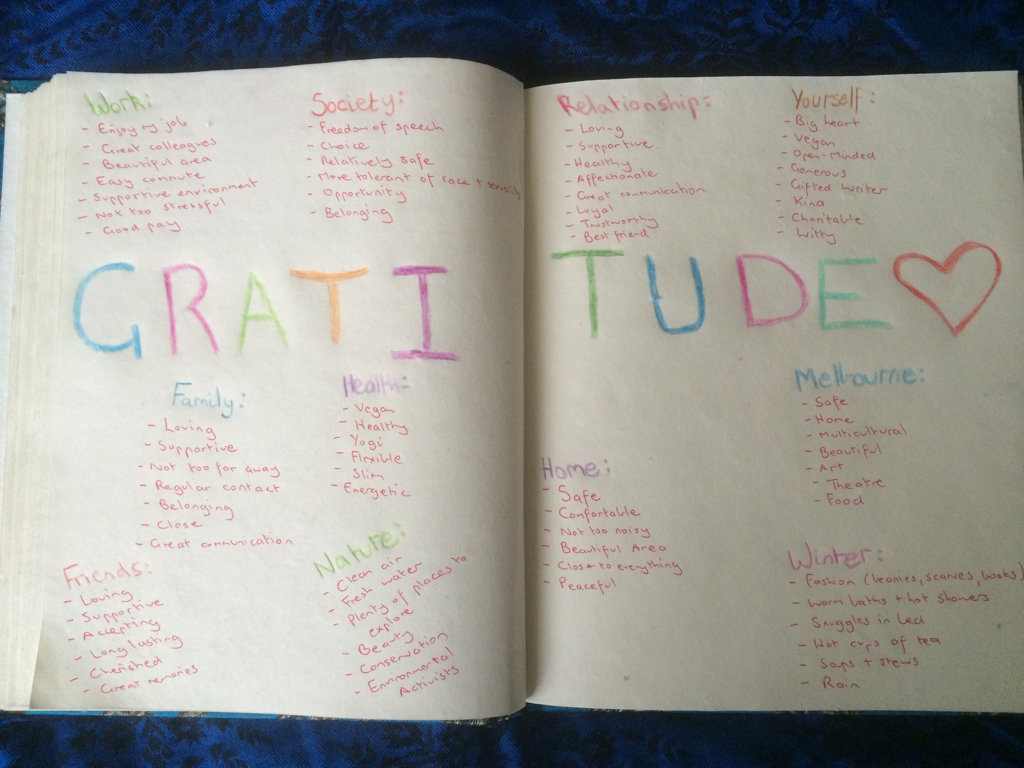 Work:
- Enjoy my job
- Great colleagues
- Beautiful area
- Easy commute
- Supportive environment
- Not too stressful
- Good pay
Society:
- Freedom of speech
- Choice
- Relatively safe
- More tolerant of race + sexuality
- Opportunity
- Belonging
Relationship:
- Loving
- Supportive
- Healthy
- Affectionate
- Great communication
- Loyal
- Trustworthy
- Best friend
Yourself:
- Big heart
- Vegan
- Open-Minded
- Generous
- Gifted Writer
- Kind
- Charitable
- Witty
GRATITUDE
Family:
- Loving
- Supportive
- Not too far away
- Regular contact
- Belonging
- Close
- Great communication
Health:
- Vegan
- Healthy
- Yogi
- Flexible
- Slim
- Energetic
Friends:
- Loving
- Supportive
- Accepting
- Long lasting
- Cherished
- Great memories
Nature:
- Clean air
- Fresh water
- Plenty of places to
explore
- Beauty
- Conservation
- Environmental
Activists
Home:
- Safe
- Comfortable
- Not too noisy
- Beautiful Area
- Close to everything
- Peaceful
Melbourne:
- Safe
- Home
- Multicultural
- Beautiful
- Art
- Theatre
- Food
Winter:
- Fashion (beanies, scarves, boots)
- Warm baths + hot showers
- Snuggles in bed
- Hot cups of tea
- Soups + stews
- Rain